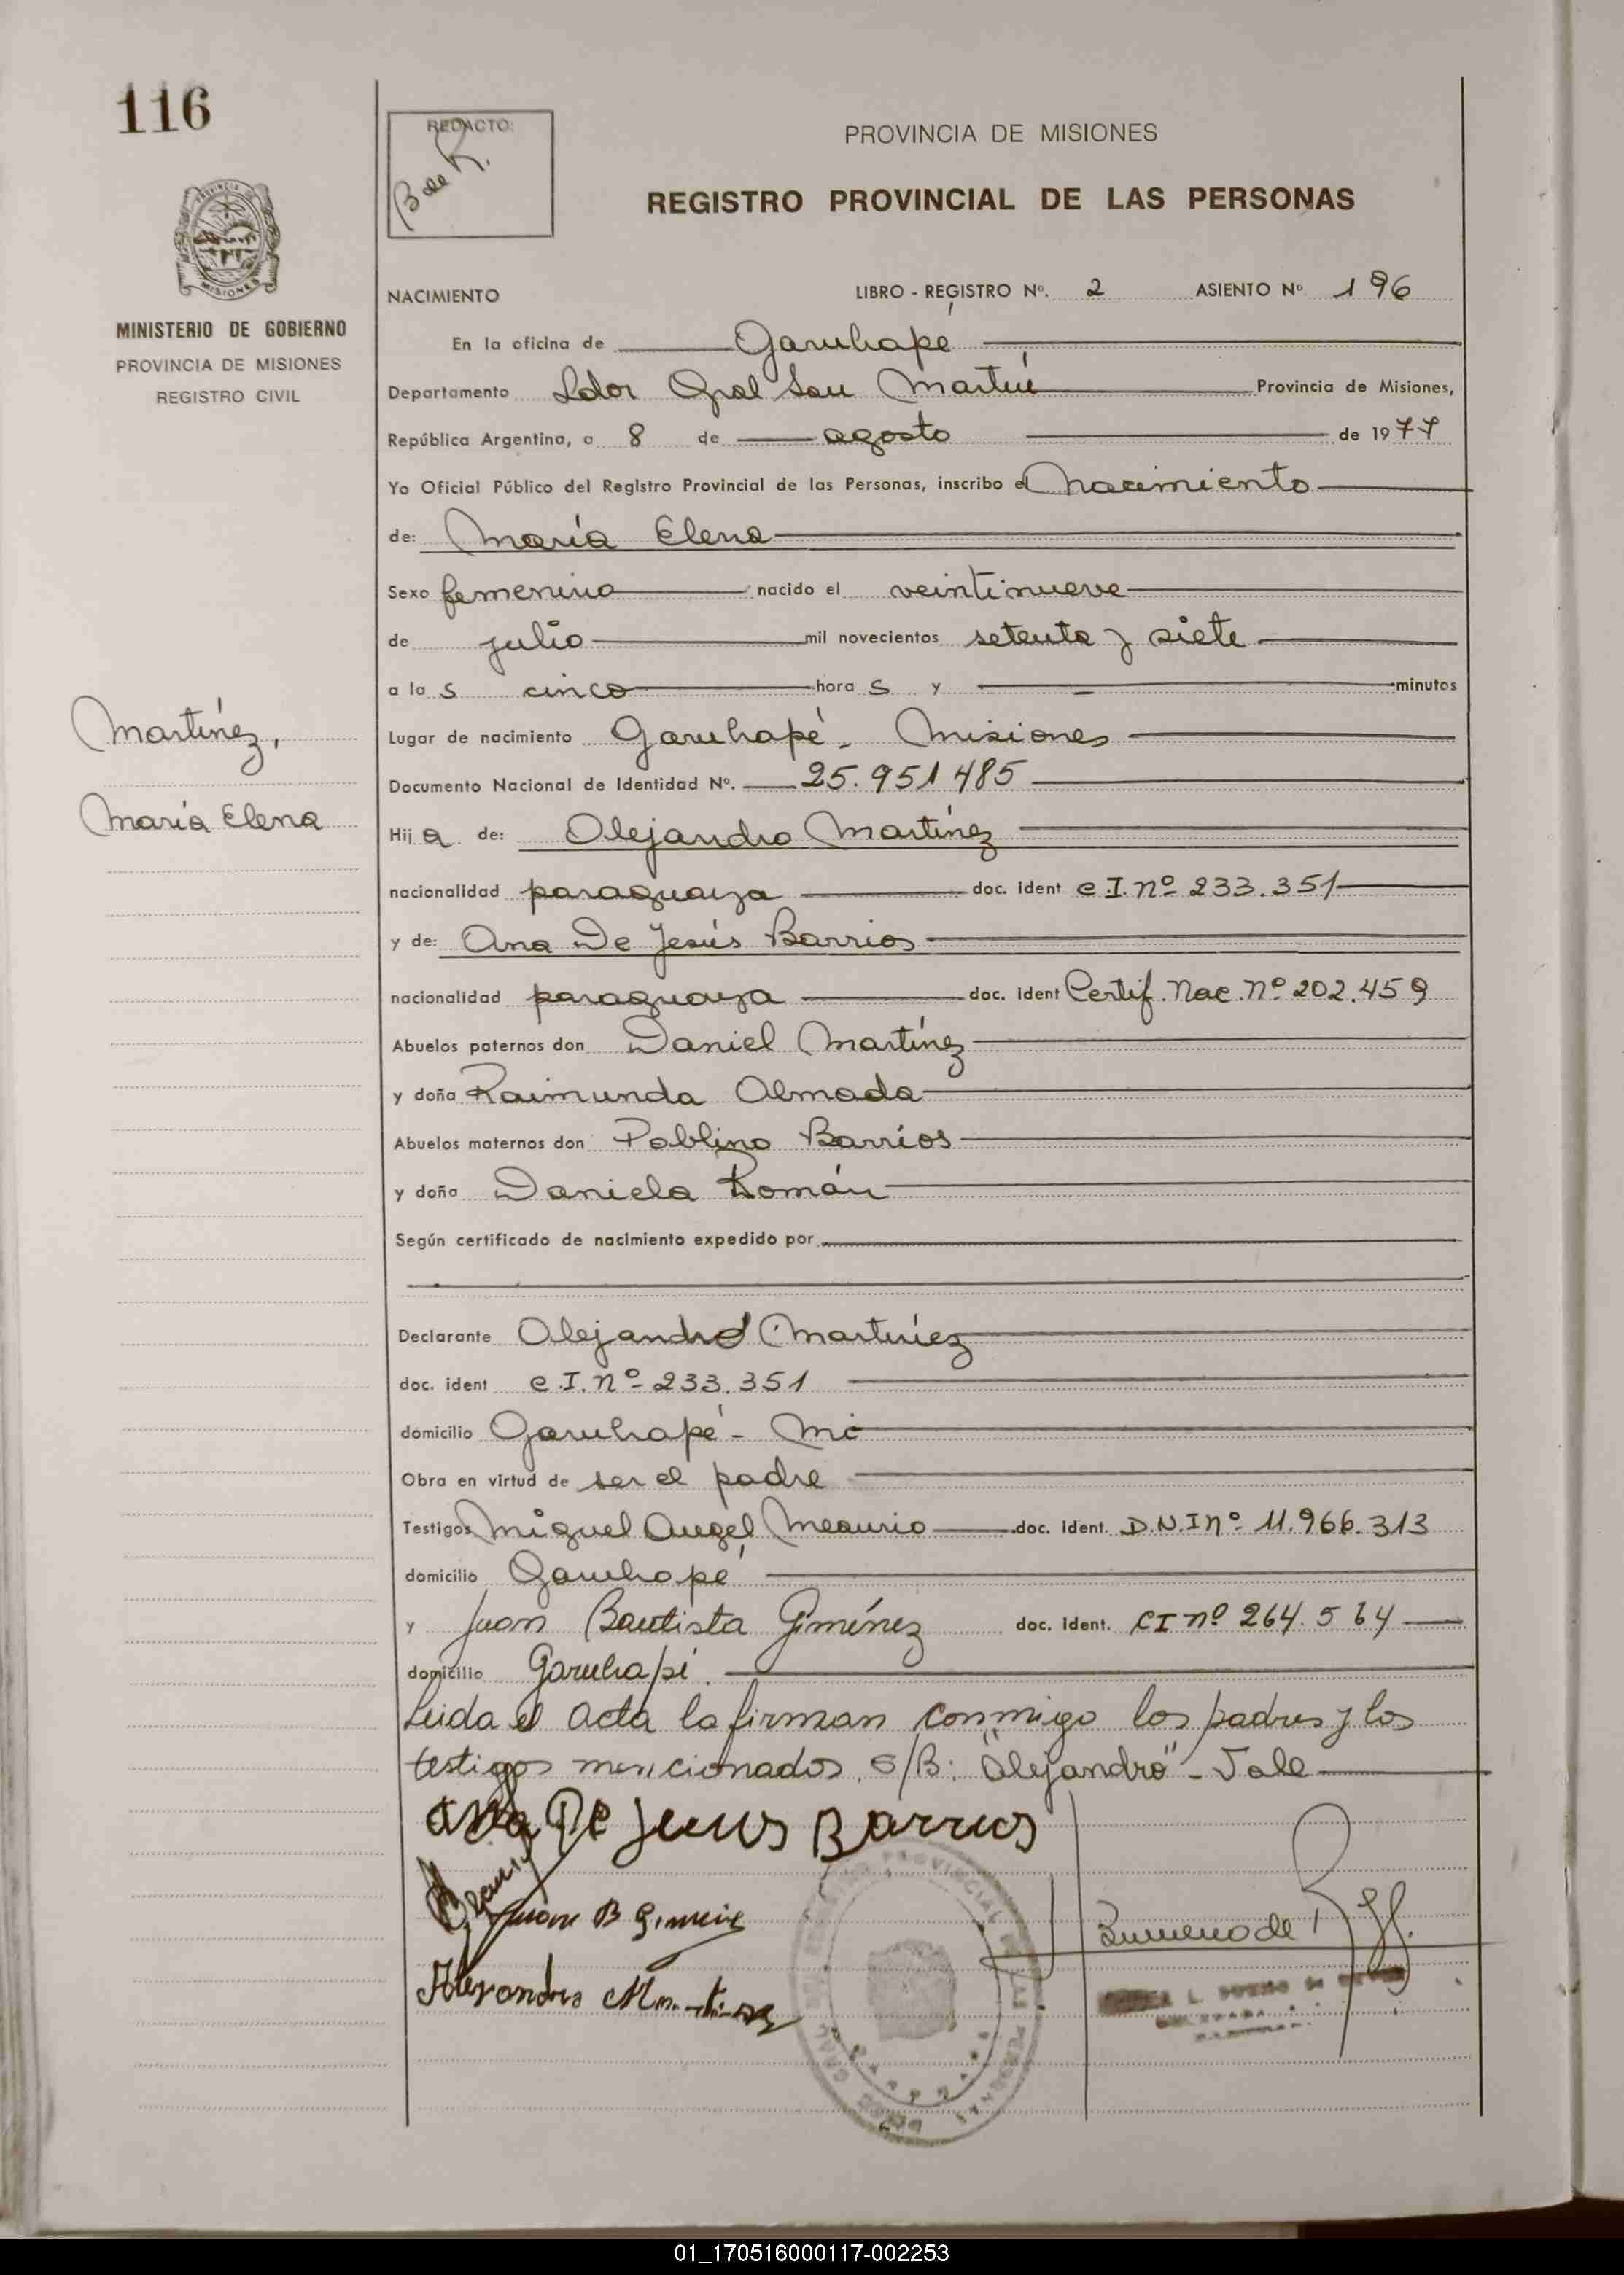 116
REDACTO:
B de R.
PROVINCIA DE MISIONES
REGISTRO PROVINCIAL DE LAS PERSONAS
MISIONES
MINISTERIO DE GOBIERNO
PROVINCIA DE MISIONES
REGISTRO CIVIL
NACIMIENTO LIBRO - REGISTRO Nº. 2 ASIENTO Nº 196
En la oficina de Garuhapé
Departamento Ldor Gral San Martín Provincia de Misiones,
República Argentina, a 8 de agosto de 1977
Yo Oficial Público del Registro Provincial de las Personas, inscribo el nacimiento
de: María Elena
Sexo femenino nacido el veintinueve
de julio mil novecientos setenta y siete
a la s cinco hora s y minutos
Martínez,
María Elena
Lugar de nacimiento Garuhapé - Misiones
Documento Nacional de Identidad Nº. 25.951485
Hij a de: Alejandro Martínez
nacionalidad paraguaya doc. ident C.I. nº 233.351
y de: Ana De Jesús Barrios
nacionalidad paraguaya doc. ident Certif. Nac. nº 202.459
Abuelos paternos don Daniel Martínez
y doña Raimunda Almada
Abuelos maternos don Pablino Barrios
y doña Daniela Román
Según certificado de nacimiento expedido por
Declarante Alejandro Martínez
doc. ident C.I. nº 233.351
domicilio Garuhapé - Mi
Obra en virtud de ser el padre
Testigos Miguel Angel Meaurio doc. ident. D.N.I nº 11.966.313
domicilio Garuhapé
y Juan Bautista Giménez doc. ident. CI nº 264.564
domicilio Garuhapé.
Leida el acta la firman conmigo los padres y los
testigos mencionados. S/B: "Alejandro" - Vale
Ana De Jesus Barrios
Juan B Gimenez
Alejandro Martinez
01_170516000117-002253